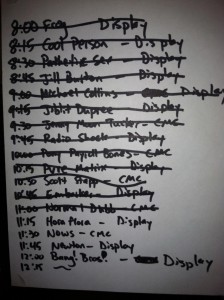 8:00 Display
8:15 Cool Person - Display
8:30 Pathetic Ger - Display
8:45 Jill Button - Display
9:00 Michael Collins - Display
9:15 Jibit Dupree - Display
9:30 Moon Tucker - CMC
9:45 Radio - Display
10:00 Pony Payroll Bones - CMC
10:15 Pure Matrix - Display
10:30 Scott Stapp - CMC
10:45 - Display
11:00 Normal - CMC
11:15 Hora Flora - Display
11:30 News - CMC
11:45 Newton - Display
12:00 Bang! Bros! - Display
12:15